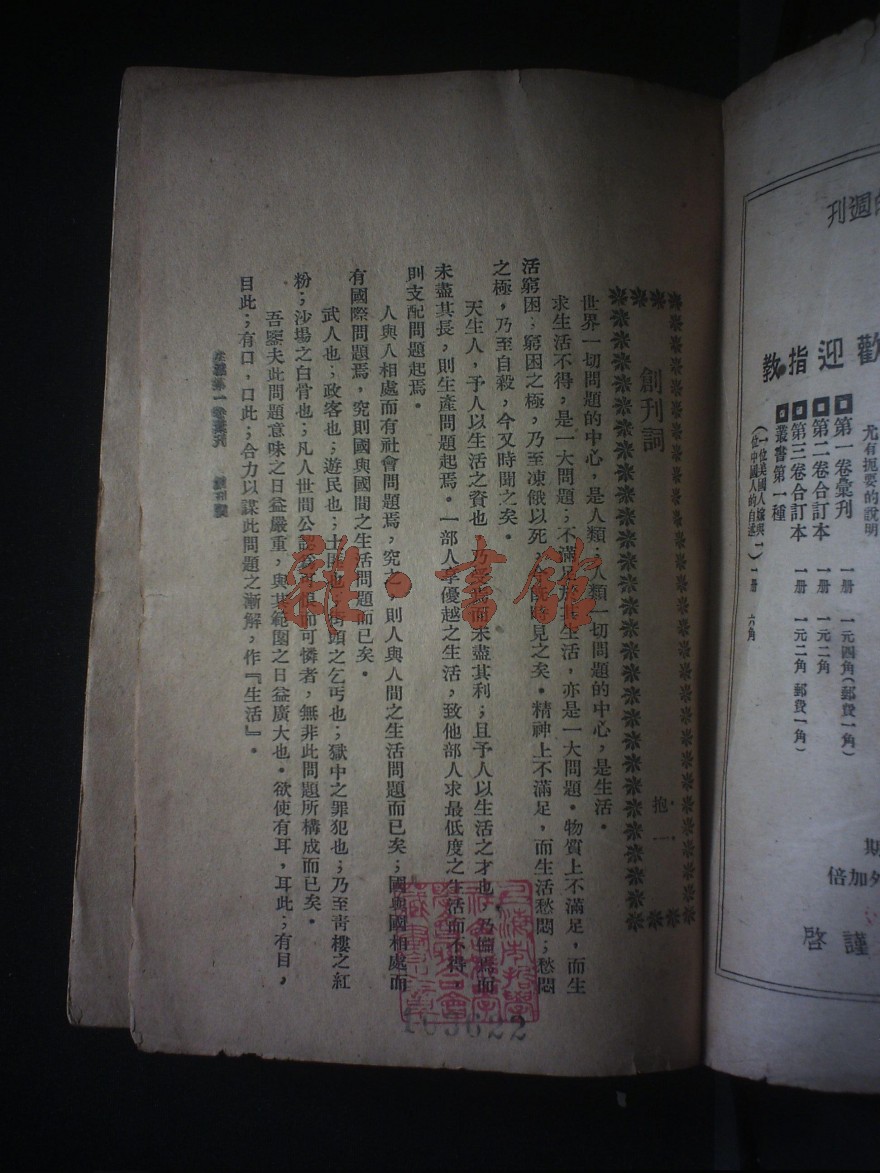 的週刊
歡迎指教
尤有扼要的說明
第一卷彙刊 一册 一元四角(郵費一角)
第二卷合訂本 一册 一元二角
第三卷合訂本 一册 一元二角(郵費一角)
叢書第一種
(一位美國人嫁與一位中國人的自述) 一册 六角
期
外加倍
謹啓
創刊詞
抱一
世界一切問題的中心,是人類;人類一切問題的中心,是生活。
求生活不得,是一大問題;不滿足於其生活,亦是一大問題。物質上不滿足,而生
活窮困;窮困之極,乃至凍餓以死,今皆時見之矣。精神上不滿足,而生活愁悶;愁悶
之極,乃至自殺,今又時聞之矣。
天生人,予人以生活之資也,乃受焉而未盡其利;且予人以生活之才也,乃備焉而
未盡其長,則生產問題起焉。一部人享優越之生活,致他部人求最低度之生活而不得,
則支配問題起焉。
人與人相處而有社會問題焉,究之,則人與人間之生活問題而已矣;國與國相處而
有國際問題焉,究則國與國間之生活問題而已矣。
武人也;政客也;遊民也;土匪也;街頭之乞丐也;獄中之罪犯也;乃至靑樓之紅
粉;沙場之白骨也;凡人世間公認爲可而可憐者,無非此問題所構成而已矣。
吾鑒夫此問題意味之日益嚴重,與其範圍之日益廣大也。欲使有耳,耳此;有目,
目此;有口,口此;合力以謀此問題之漸解,作『生活』。
生活第一卷彙刊 創刊號
雜·書館
103622